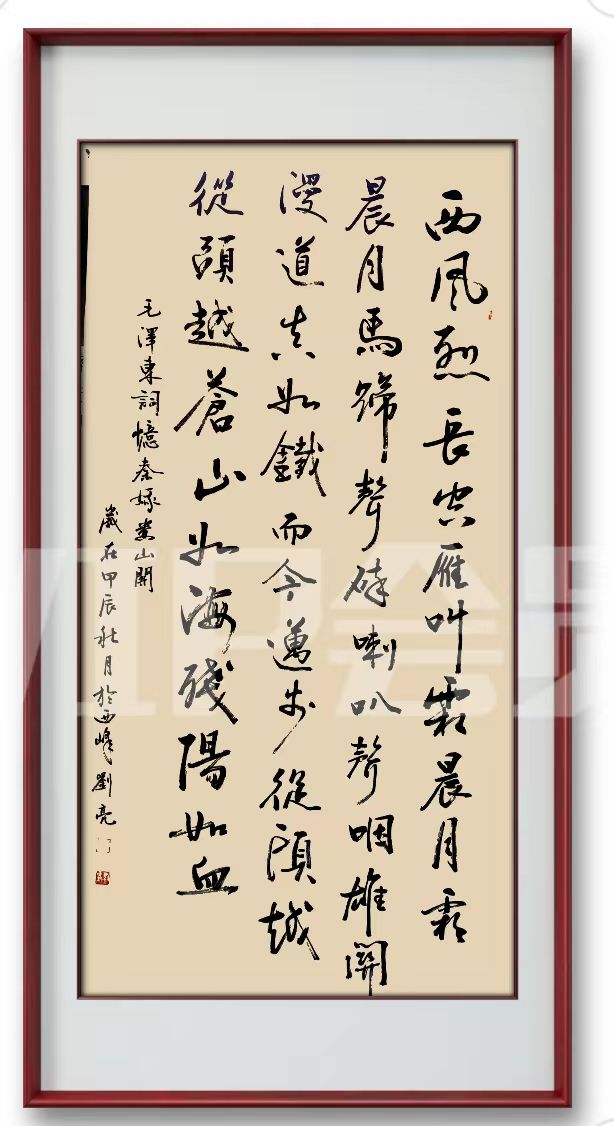 西風烈長空雁叫霜晨月霜
晨月馬蹄聲碎喇叭聲咽雄關
漫道真如鐵而今邁步從頭越
從頭越蒼山如海殘陽如血
毛澤東詞憶秦娥婁山關
歲在甲辰秋月於西峰劉亮
VIP会员